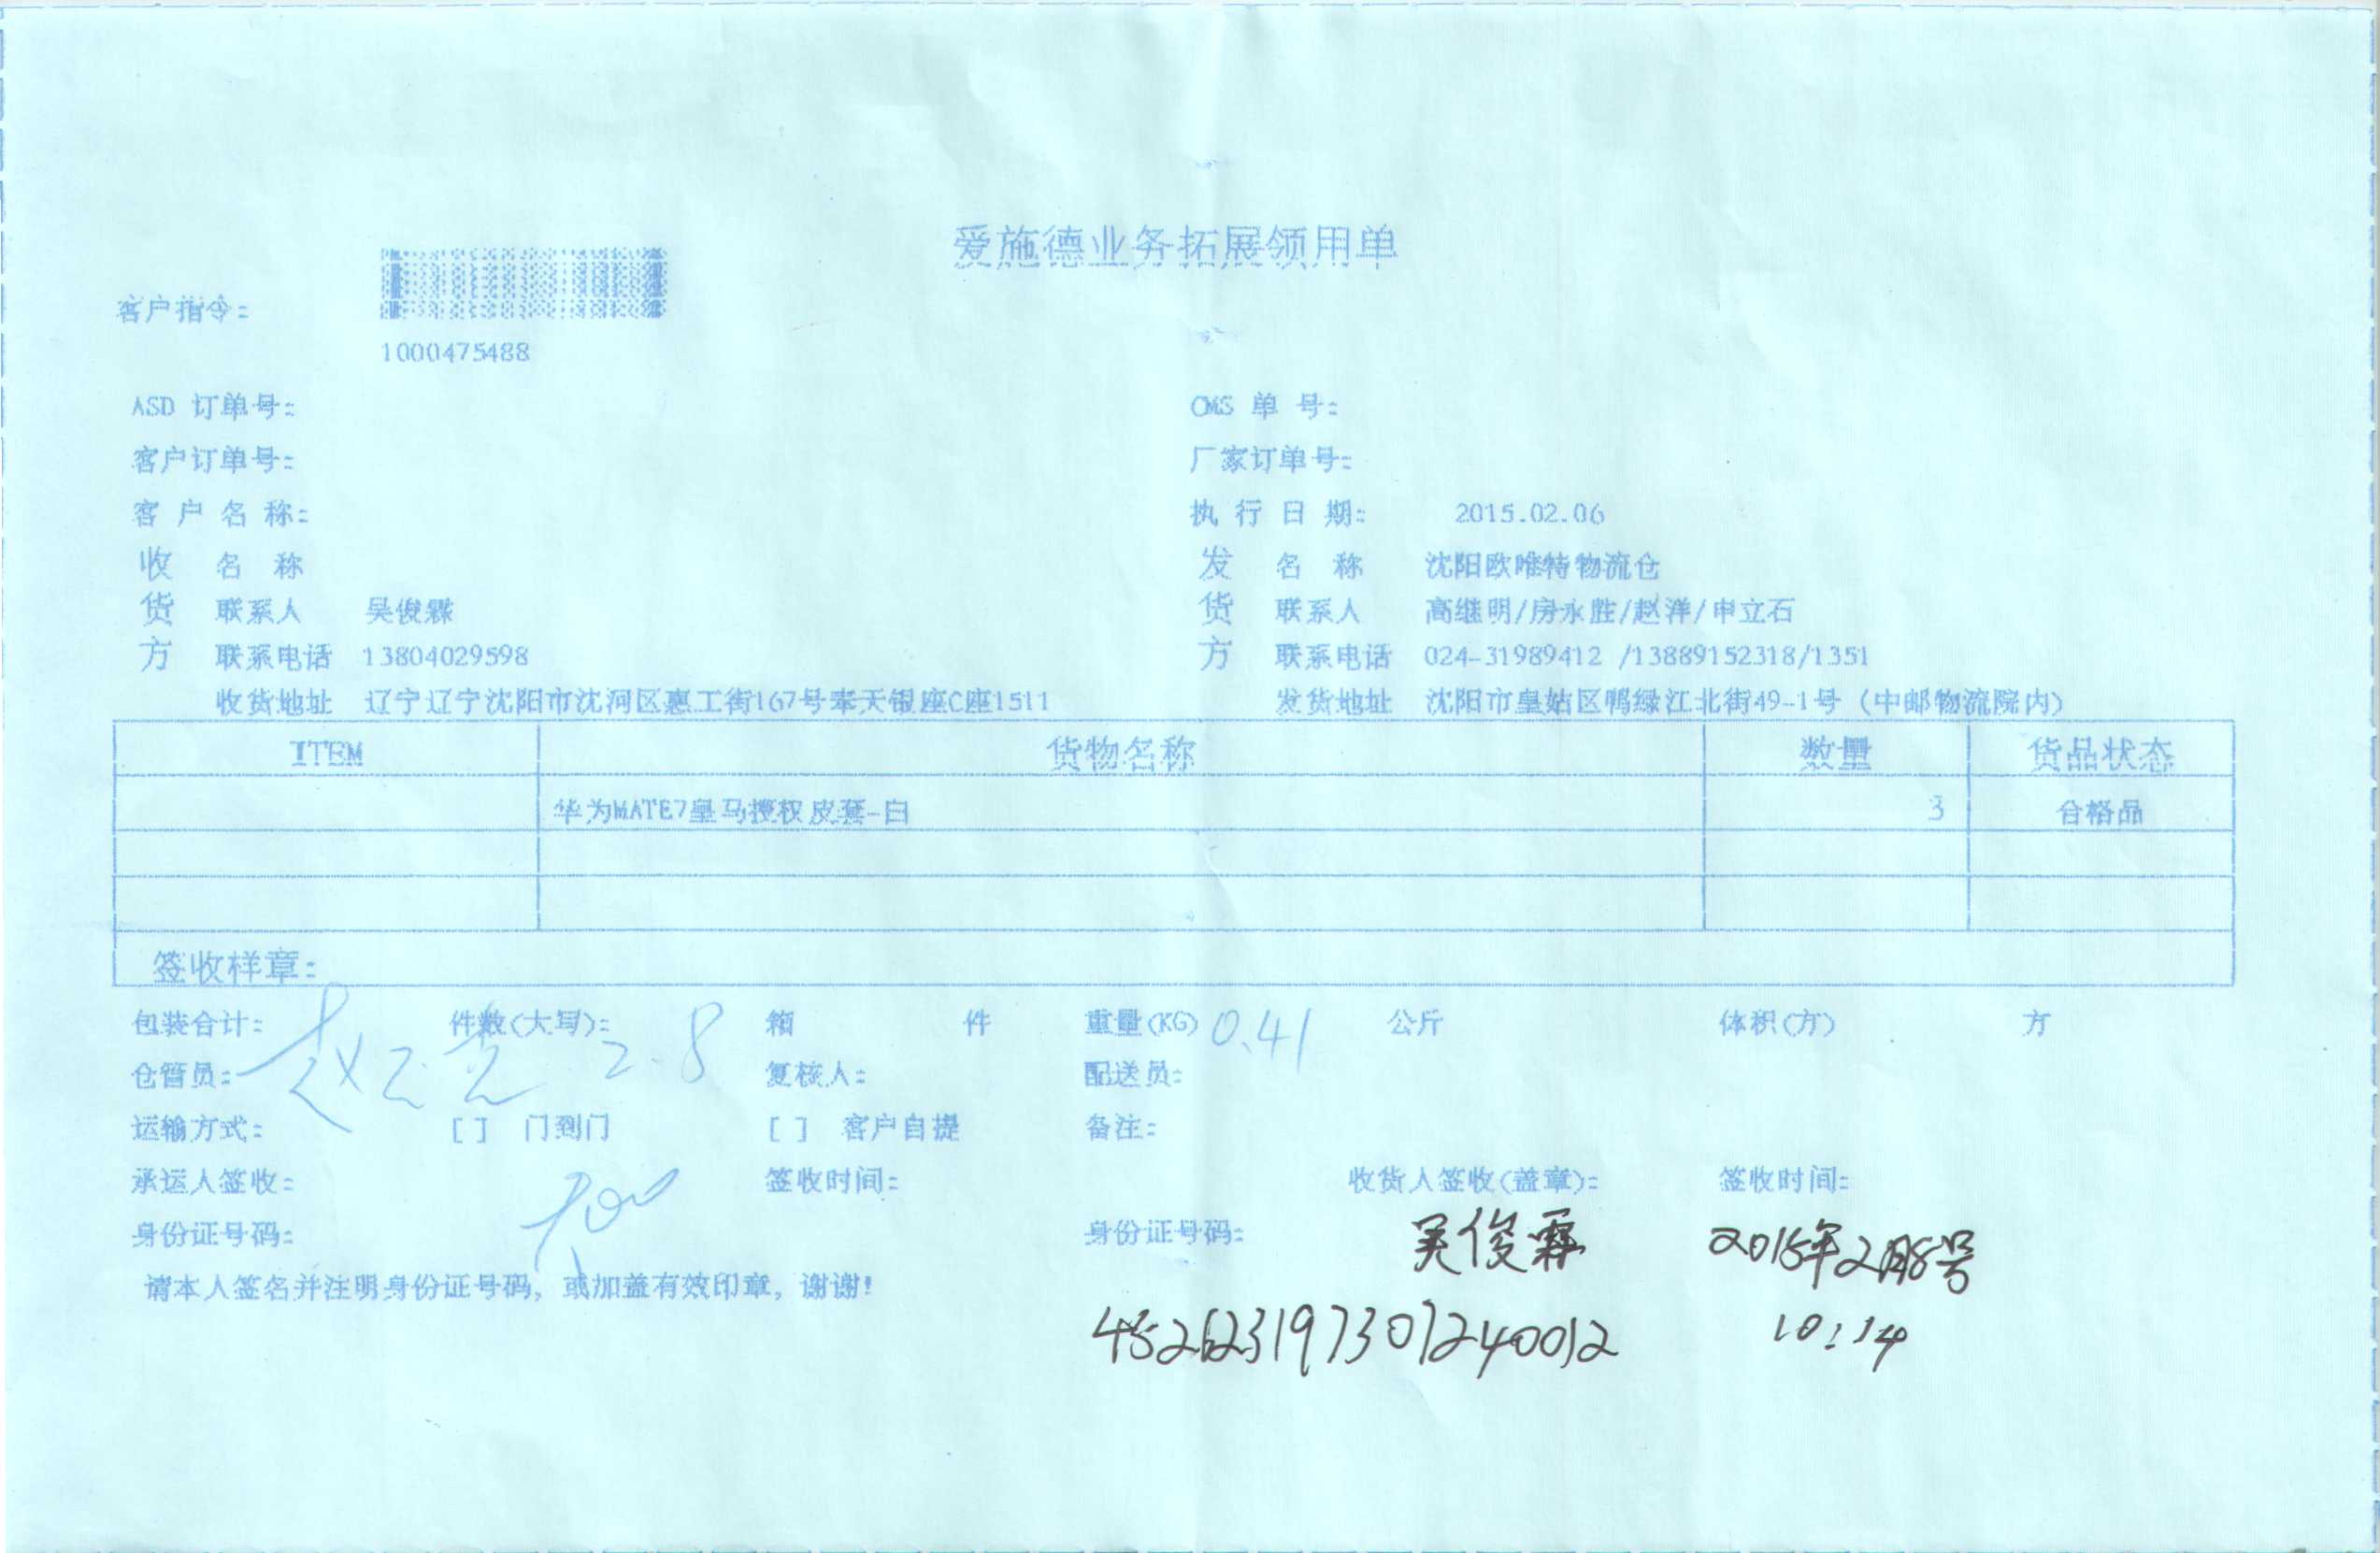 爱施德业务拓展领用单
客户指令:
1000475488
ASD 订单号: CMS 单 号:
客户订单号: 厂家订单号:
客 户 名 称: 执 行 日 期: 2015.02.06
收 名 称 发 名 称 沈阳欧唯特物流仓
货 联系人 吴俊霖 货 联系人 高继明/房永胜/赵洋/申立石
方 联系电话 13804029598 方 联系电话 024-31989412 /13889152318/1351
收货地址 辽宁辽宁沈阳市沈河区惠工街167号奉天银座C座1511 发货地址 沈阳市皇姑区鸭绿江北街49-1号 (中邮物流院内)
ITEM 货物名称 数量 货品状态
华为MATE7皇马授权皮套-白 3 合格品
签收样章:
包装合计: 件数(大写): 箱 件 重量(KG) 0.41 公斤 体积(方) 方
仓管员: 2.8 复核人: 配送员:
运输方式: [ ] 门到门 [ ] 客户自提 备注:
承运人签收: 签收时间: 收货人签收(盖章): 签收时间:
身份证号码: 身份证号码: 吴俊霖 2015年2月8号
请本人签名并注明身份证号码, 或加盖有效印章, 谢谢!
452623197307240012 10:14